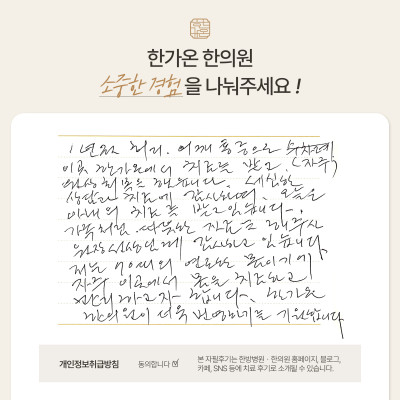 한가온 한의원
소중한 경험을 나눠주세요!
1년 허리, 어깨 통증으로
이곳 한가온에서 치료를 받고, (자주)
완성 회복을 했습니다. 세심한
상담과 치료에 감사하며, 오늘은
아내의 치료를 받고 있습니다.
가족처럼 따뜻한 치료를 해주시
원장선생님께 감사하고 있습니다.
저는 70세의 연로한 몸이기에
자주 이곳에서 몸을 치료하고
하고자 합니다. 한가온
한의원이 더욱 번영하기를 기원합니다.
개인정보취급방침 동의합니다
본 자필후기는 한방병원 · 한의원 홈페이지, 블로그,
카페, SNS 등에 치료 후기로 소개될 수 있습니다.